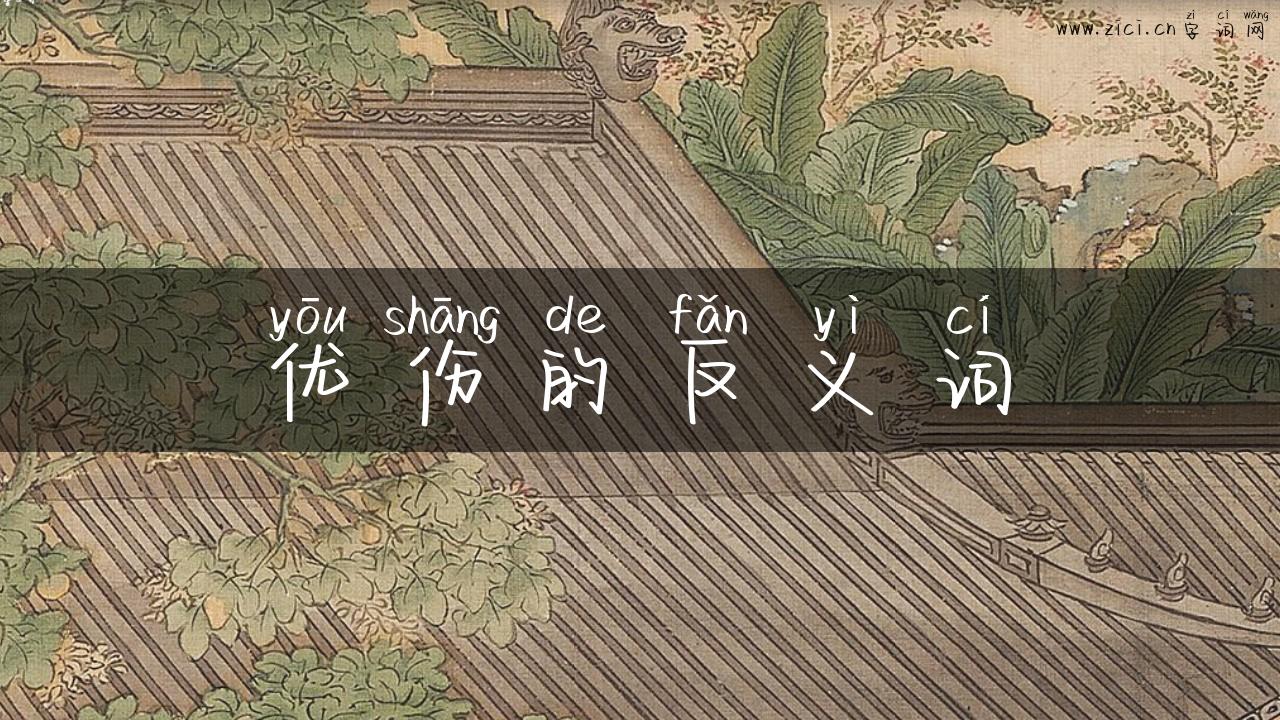 zì cí wǎng
www.zici.cn 字词网
yōu shāng de fǎn yì cí
优伤的反义词